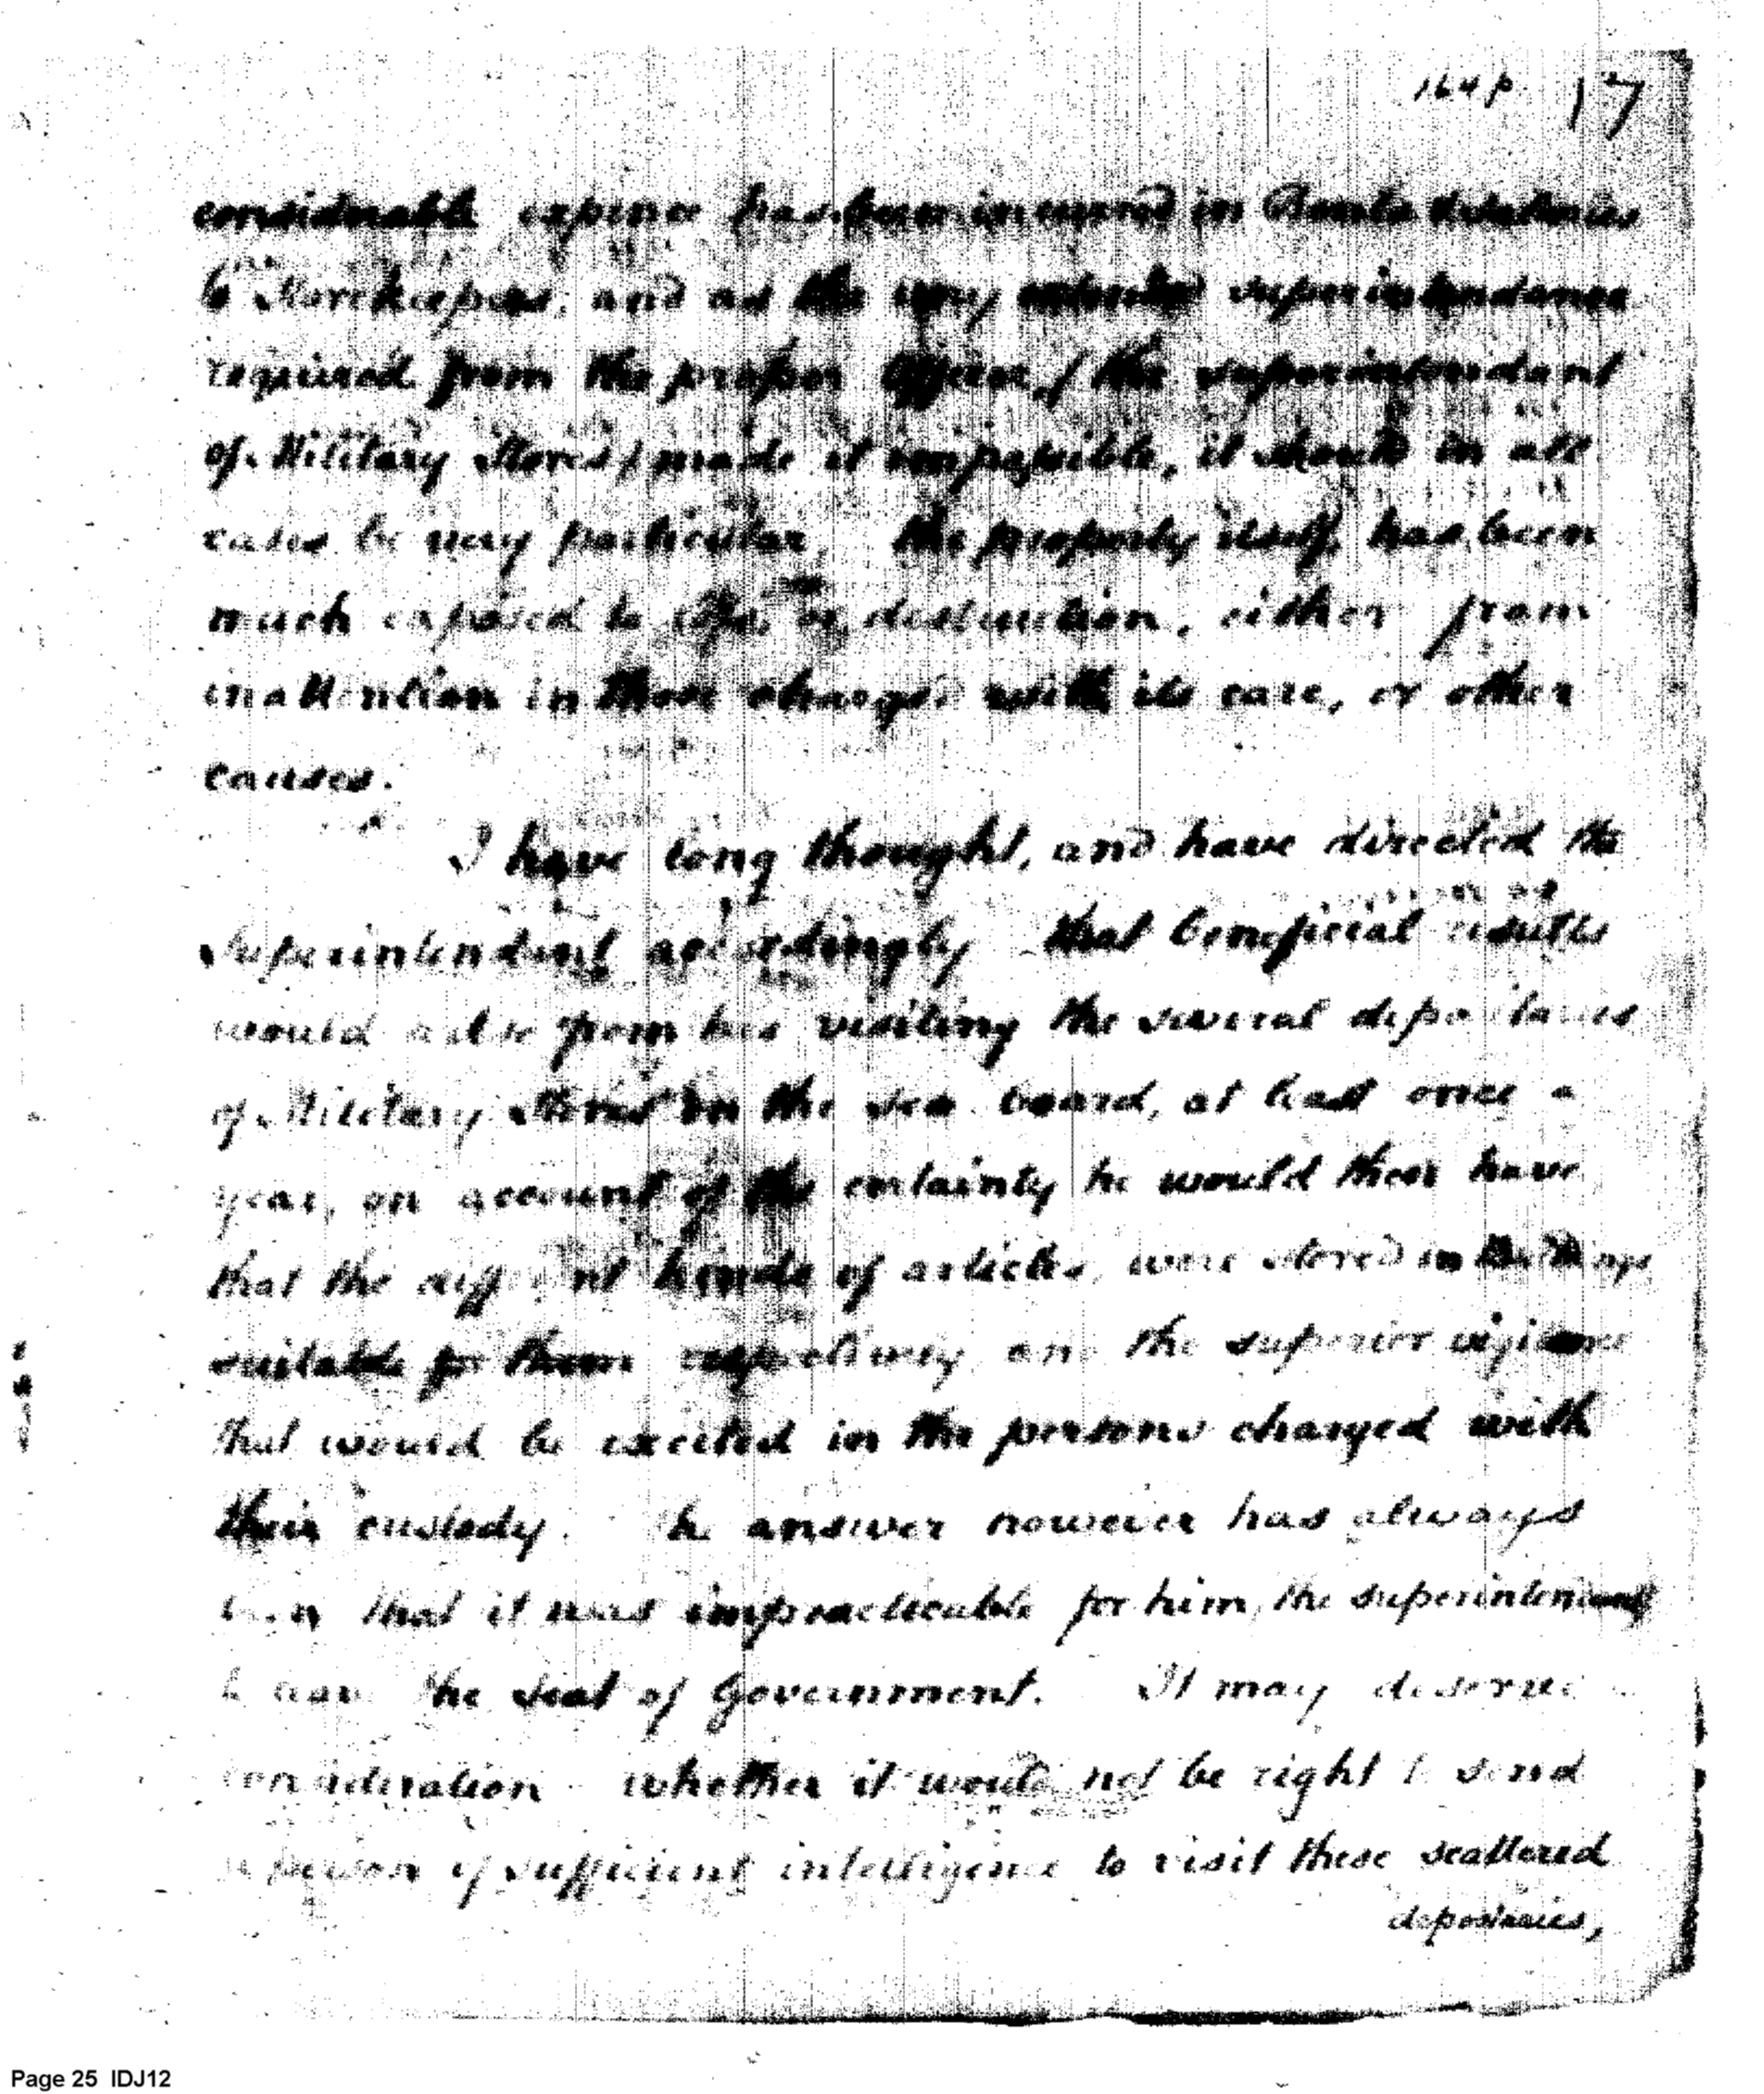 164 p. 17
considerable expence has been incurred in Rents & Salaries
to Storekeepers, and as the very extended superintendance
required from the proper Officer / the superintendant
of Military Stores / made it impossible, it should in all
cases be very particular, the property itself, has been
much exposed to loss or destruction, either from
inattention in those charged with its care, or other
causes.
I have long thought, and have directed the
Superintendant accordingly that beneficial results
would arise from his visiting the several depositaries
of Military Stores on the sea board, at least once a
year, on account of the certainty he would then have
that the different kinds of articles, were stored in Buildings
suitable for them respectively and the superior vigilance
that would be excited in the persons charged with
their custody. The answer however has always
been that it was impracticable for him, the superintendant
to leave the seat of Government. It may deserve
consideration whether it would not be right to send
a person of sufficient intelligence to visit these scattered
depositaries,
Page 25 IDJ12